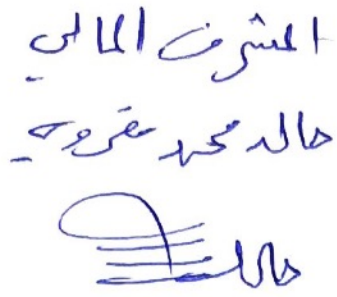 المشرف المالي
خالد محمد
خالد